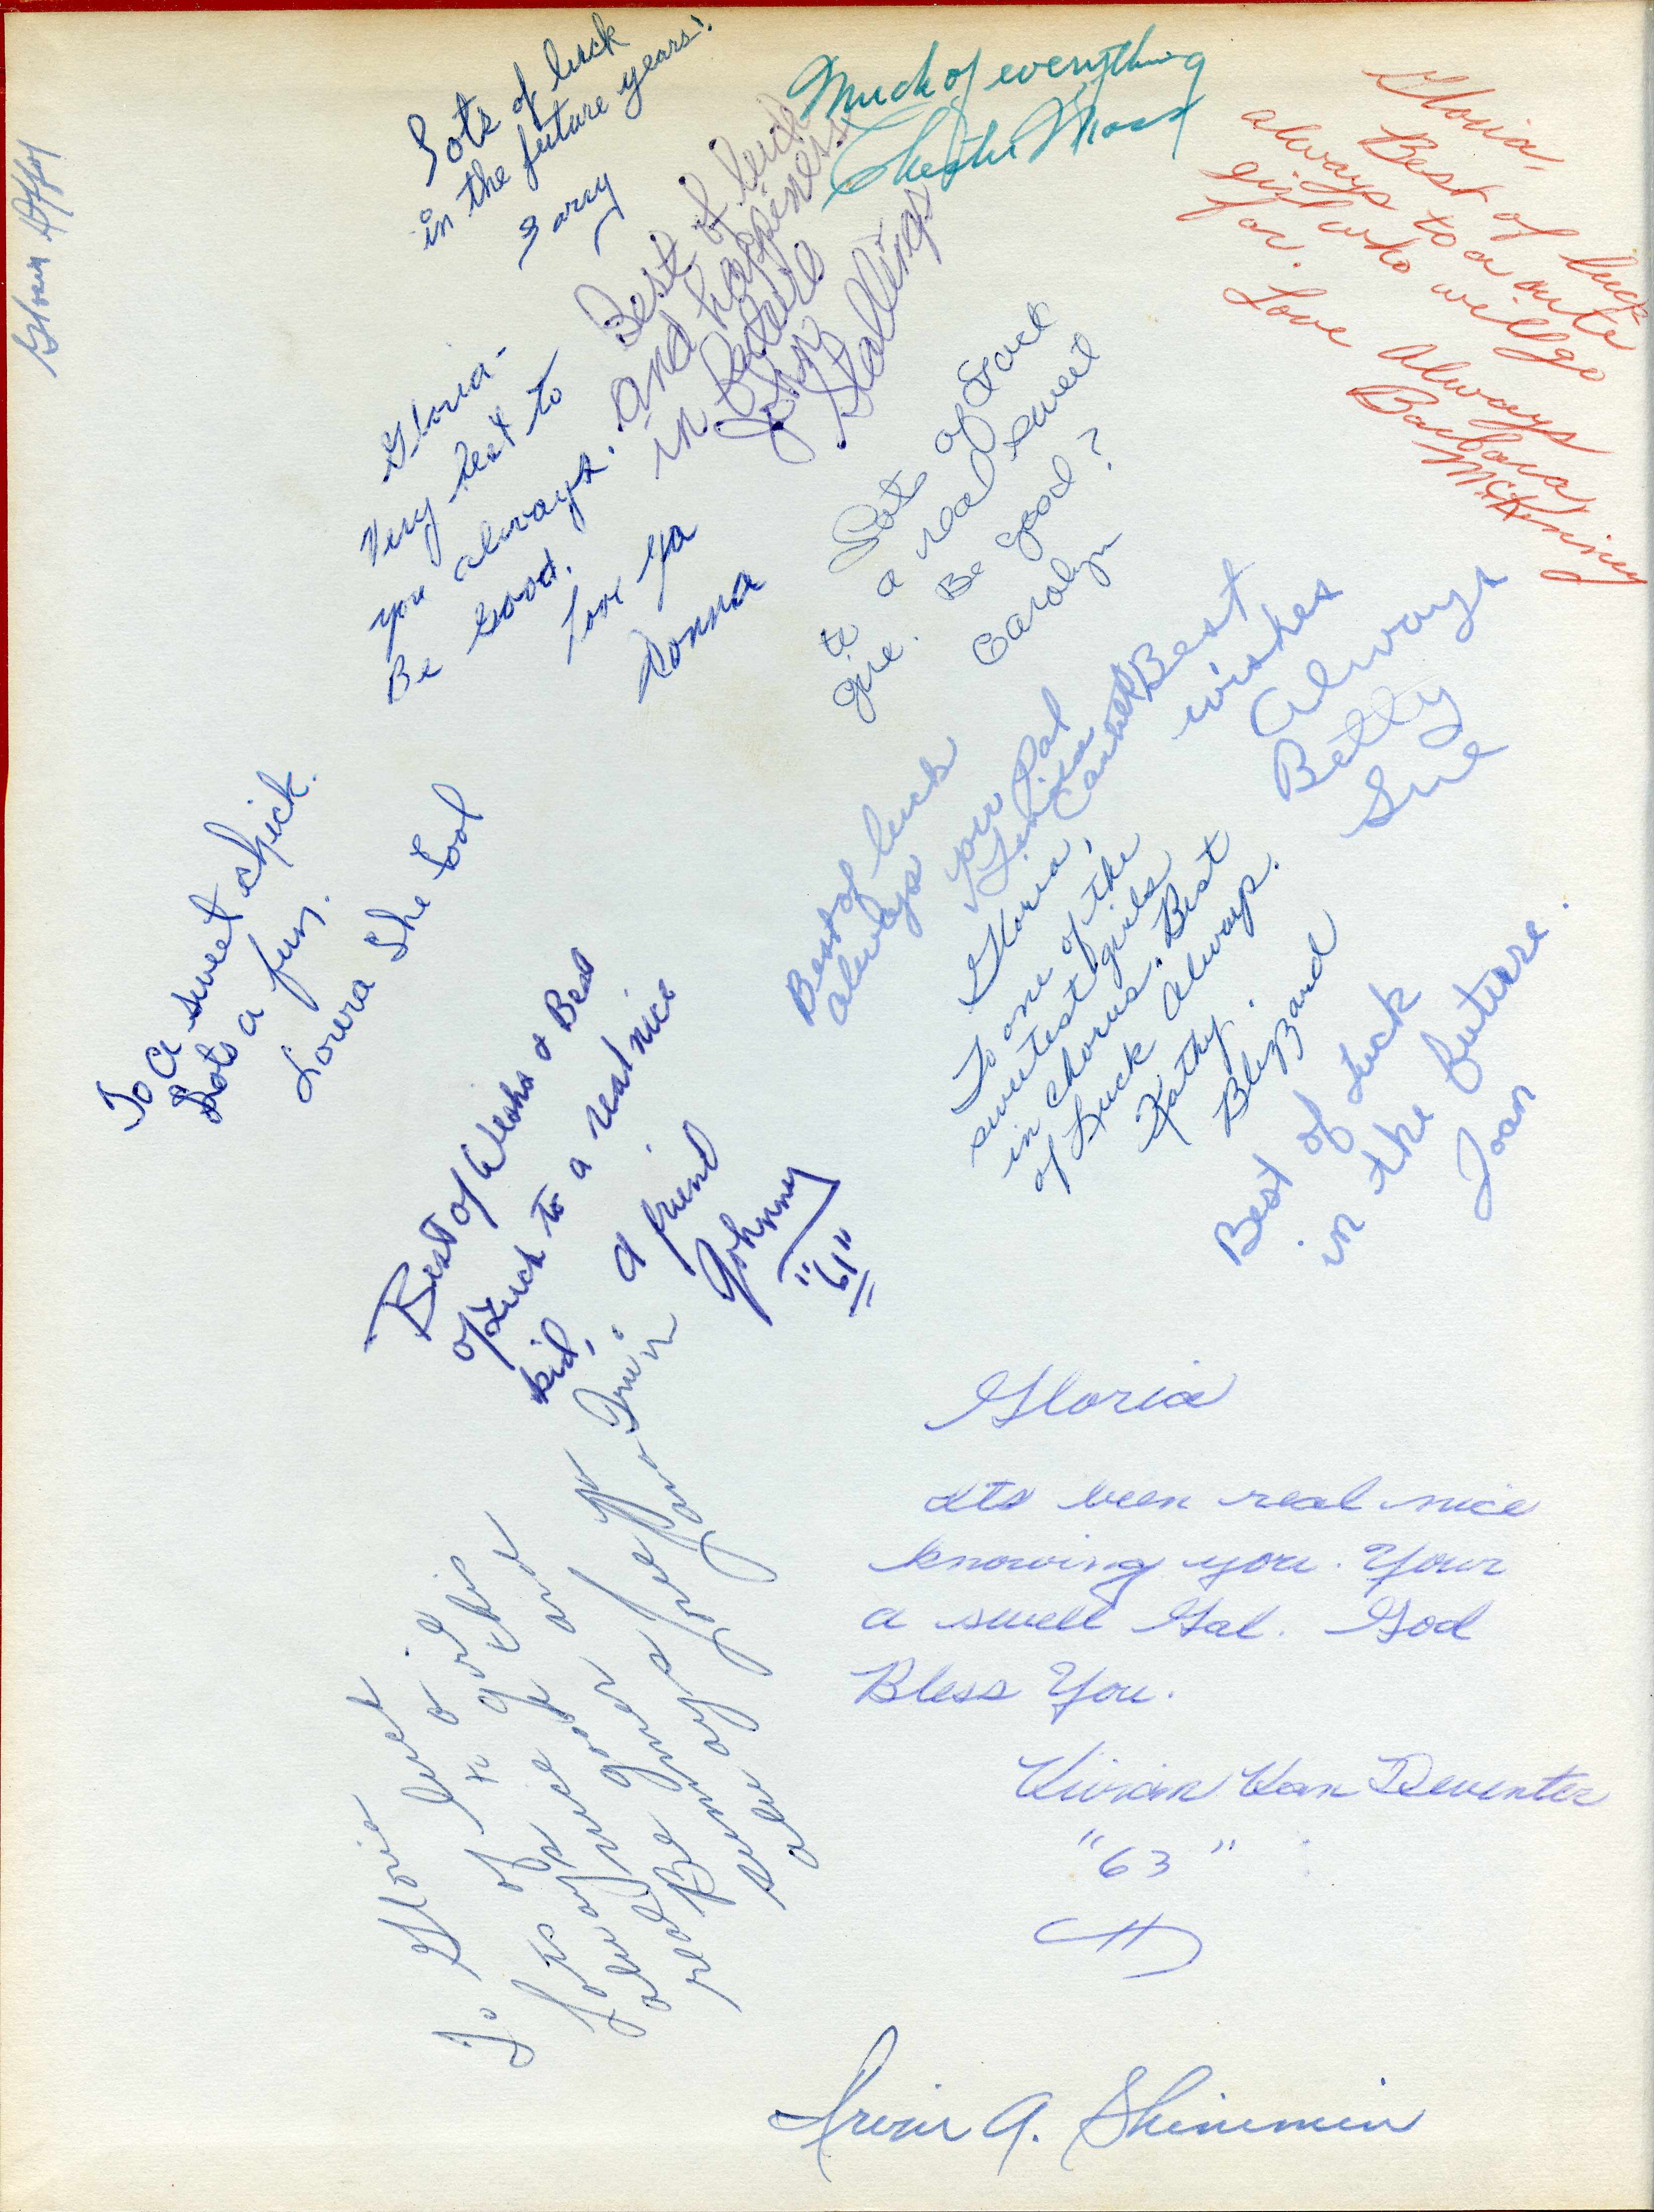 Lots of luck
in the future years!
Much of everything
Chester Moss
Gloria,
Best of luck
always to a cute
girl who will go
far.
Love Always
Barbara
McKinney
Best of luck
and happiness
in future
John
Stallings
Gloria-
Very best to
you always.
Be good.
Love ya
Donna
Lots of luck
to a real sweet
girl. Be good?
Carolyn
Best
wishes
always
Betty
Sue
Best of luck
always
your Pal
Linda
To a sweet chick.
Lots a fun.
Gloria,
To one of the
sweetest girls
in Chorus. Best
of Luck always.
Kathy
Blizzard
Best of Luck
in the future.
Joan
Best of Weshs & Best
of Luck to a real nice
kid,
a friend
Johnny
"61"
To Gloria
Lots of luck to
always
Gloria
Its been real nice
knowing you. Your
a swell Gal. God
Bless You.
Vivian Van Deventer
"63"
Irvin A. Shimmin